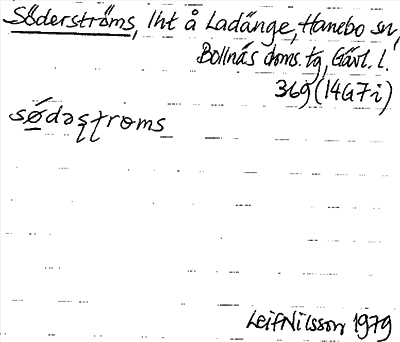 Söderströms, lht å Ladänge, Hanebo sn,
Bollnäs doms. tg, Gävl. l.
369 (14G7i)
sø̀dəʂʈroms
Leif Nilsson 1979